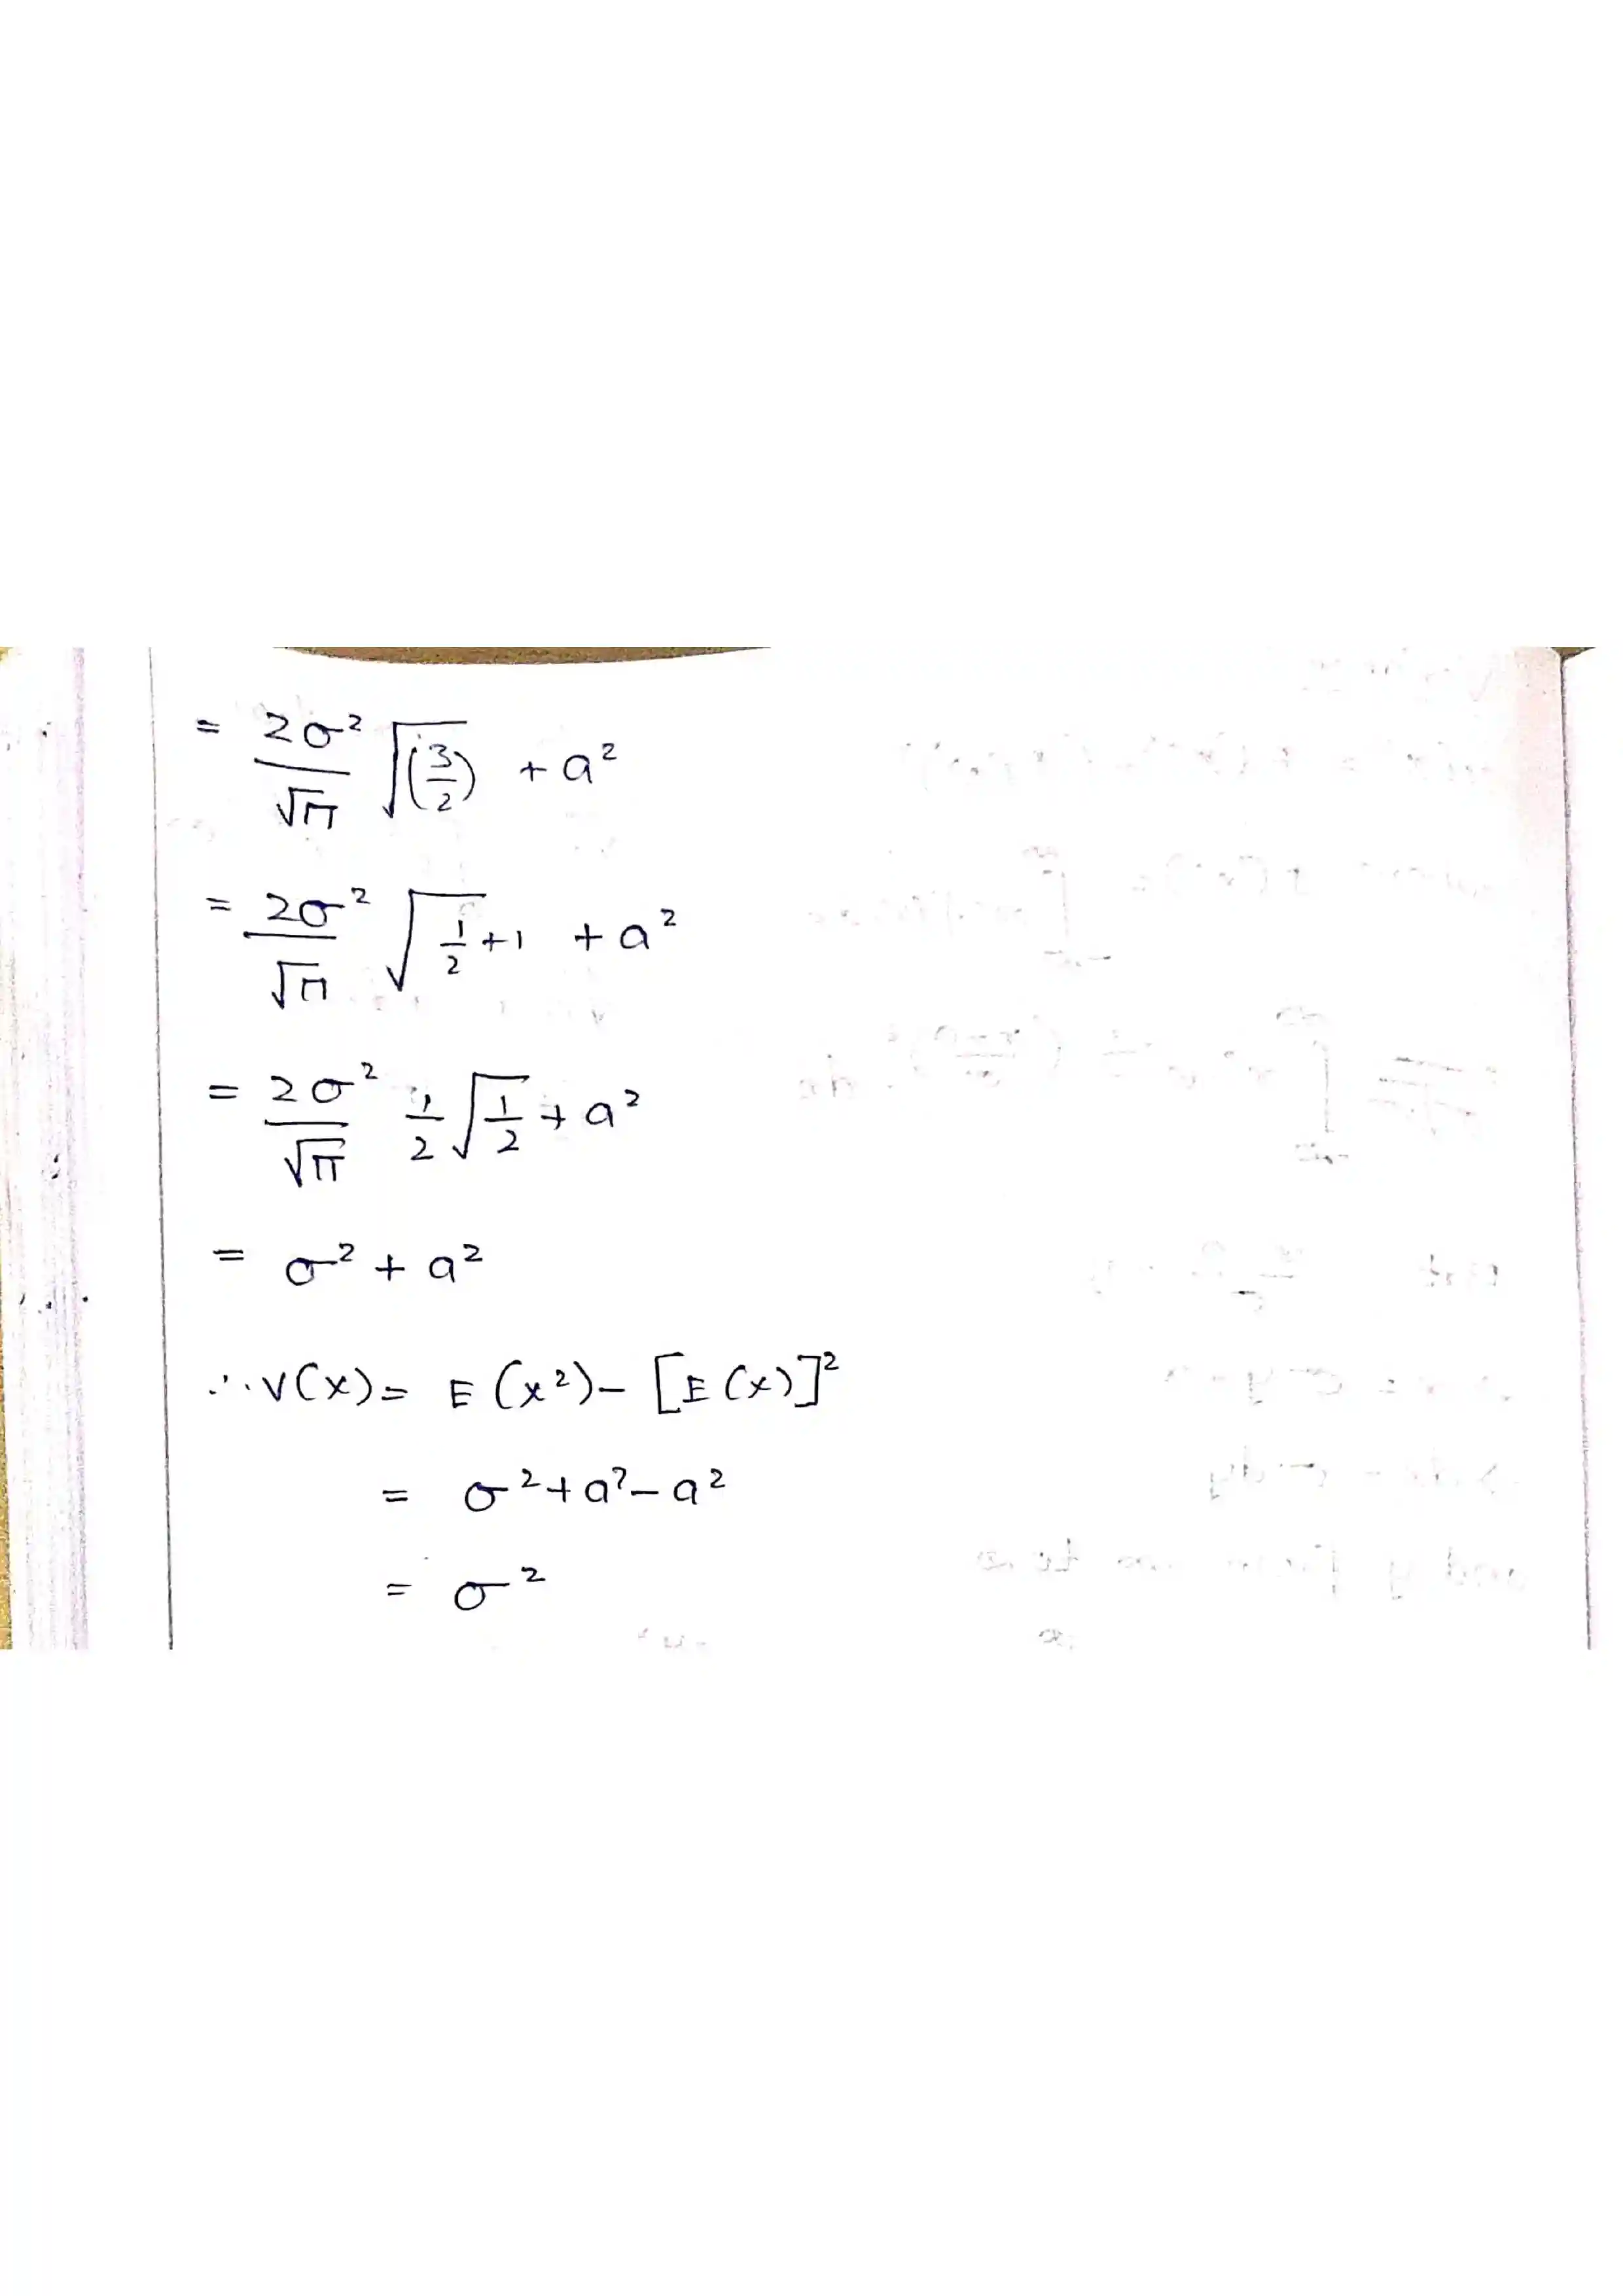 = 2σ²/√π √(3/2) + a²
= 2σ²/√π √1/2+1 + a²
= 2σ²/√π 1/2 √1/2 + a²
= σ² + a²
∴ V(X) = E(x²) - [E(x)]²
= σ² + a² - a²
= σ²